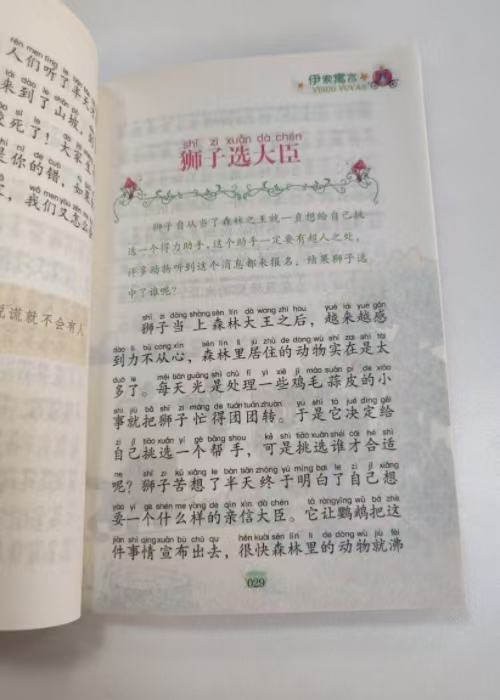 人们听了
来到了山坡，
死了！大家
是你的错，如
我们又怎么
说谎就不会有人
伊索寓言
YISUO YUYAN
shī zi xuǎn dà chén
狮子选大臣
狮子自从当了森林之王就一直想给自己挑
选一个得力助手，这个助手一定要有超人之处，
许多动物听到这个消息都来报名，结果狮子选
中了谁呢？
shī zi dāng shàng sēn lín dà wáng zhī hòu yuè lái yuè gǎn
狮子当上森林大王之后，越来越感
dào lì bù cóng xīn sēn lín lǐ jū zhù de dòng wù shí zài shì tài
到力不从心，森林里居住的动物实在是太
duō le měi tiān guāng shì chǔ lǐ yì xiē jī máo suàn pí de xiǎo
多了。每天光是处理一些鸡毛蒜皮的小
shì jiù bǎ shī zi máng de tuán tuán zhuàn yú shì tā jué dìng gěi
事就把狮子忙得团团转。于是它决定给
zì jǐ tiāo xuǎn yí gè bāng shou kě shì tiāo xuǎn shéi cái hé shì
自己挑选一个帮手，可是挑选谁才合适
ne shī zi kǔ xiǎng le bàn tiān zhōng yú míng bai le zì jǐ xiǎng
呢？狮子苦想了半天终于明白了自己想
yào yí gè shén me yàng de qīn xìn dà chén tā ràng yīng wǔ bǎ zhè
要一个什么样的亲信大臣。它让鹦鹉把这
jiàn shì qing xuān bù chū qu hěn kuài sēn lín li de dòng wù jiù fèi
件事情宣布出去，很快森林里的动物就沸
029